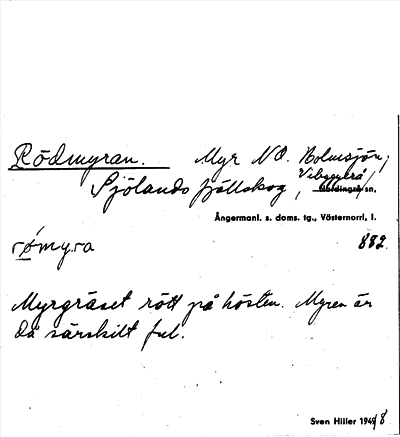 Rödmyran. Myr NO. Bolmsjön,
Sjölands fjällskog, Vibyggerå
Nordingrå sn,
Ångermanl. s. doms. tg., Västernorrl. l.
rǿmyra 882.
Myrgräset rött på hösten. Myren är
då särskilt ful.
Sven Hiller 1948